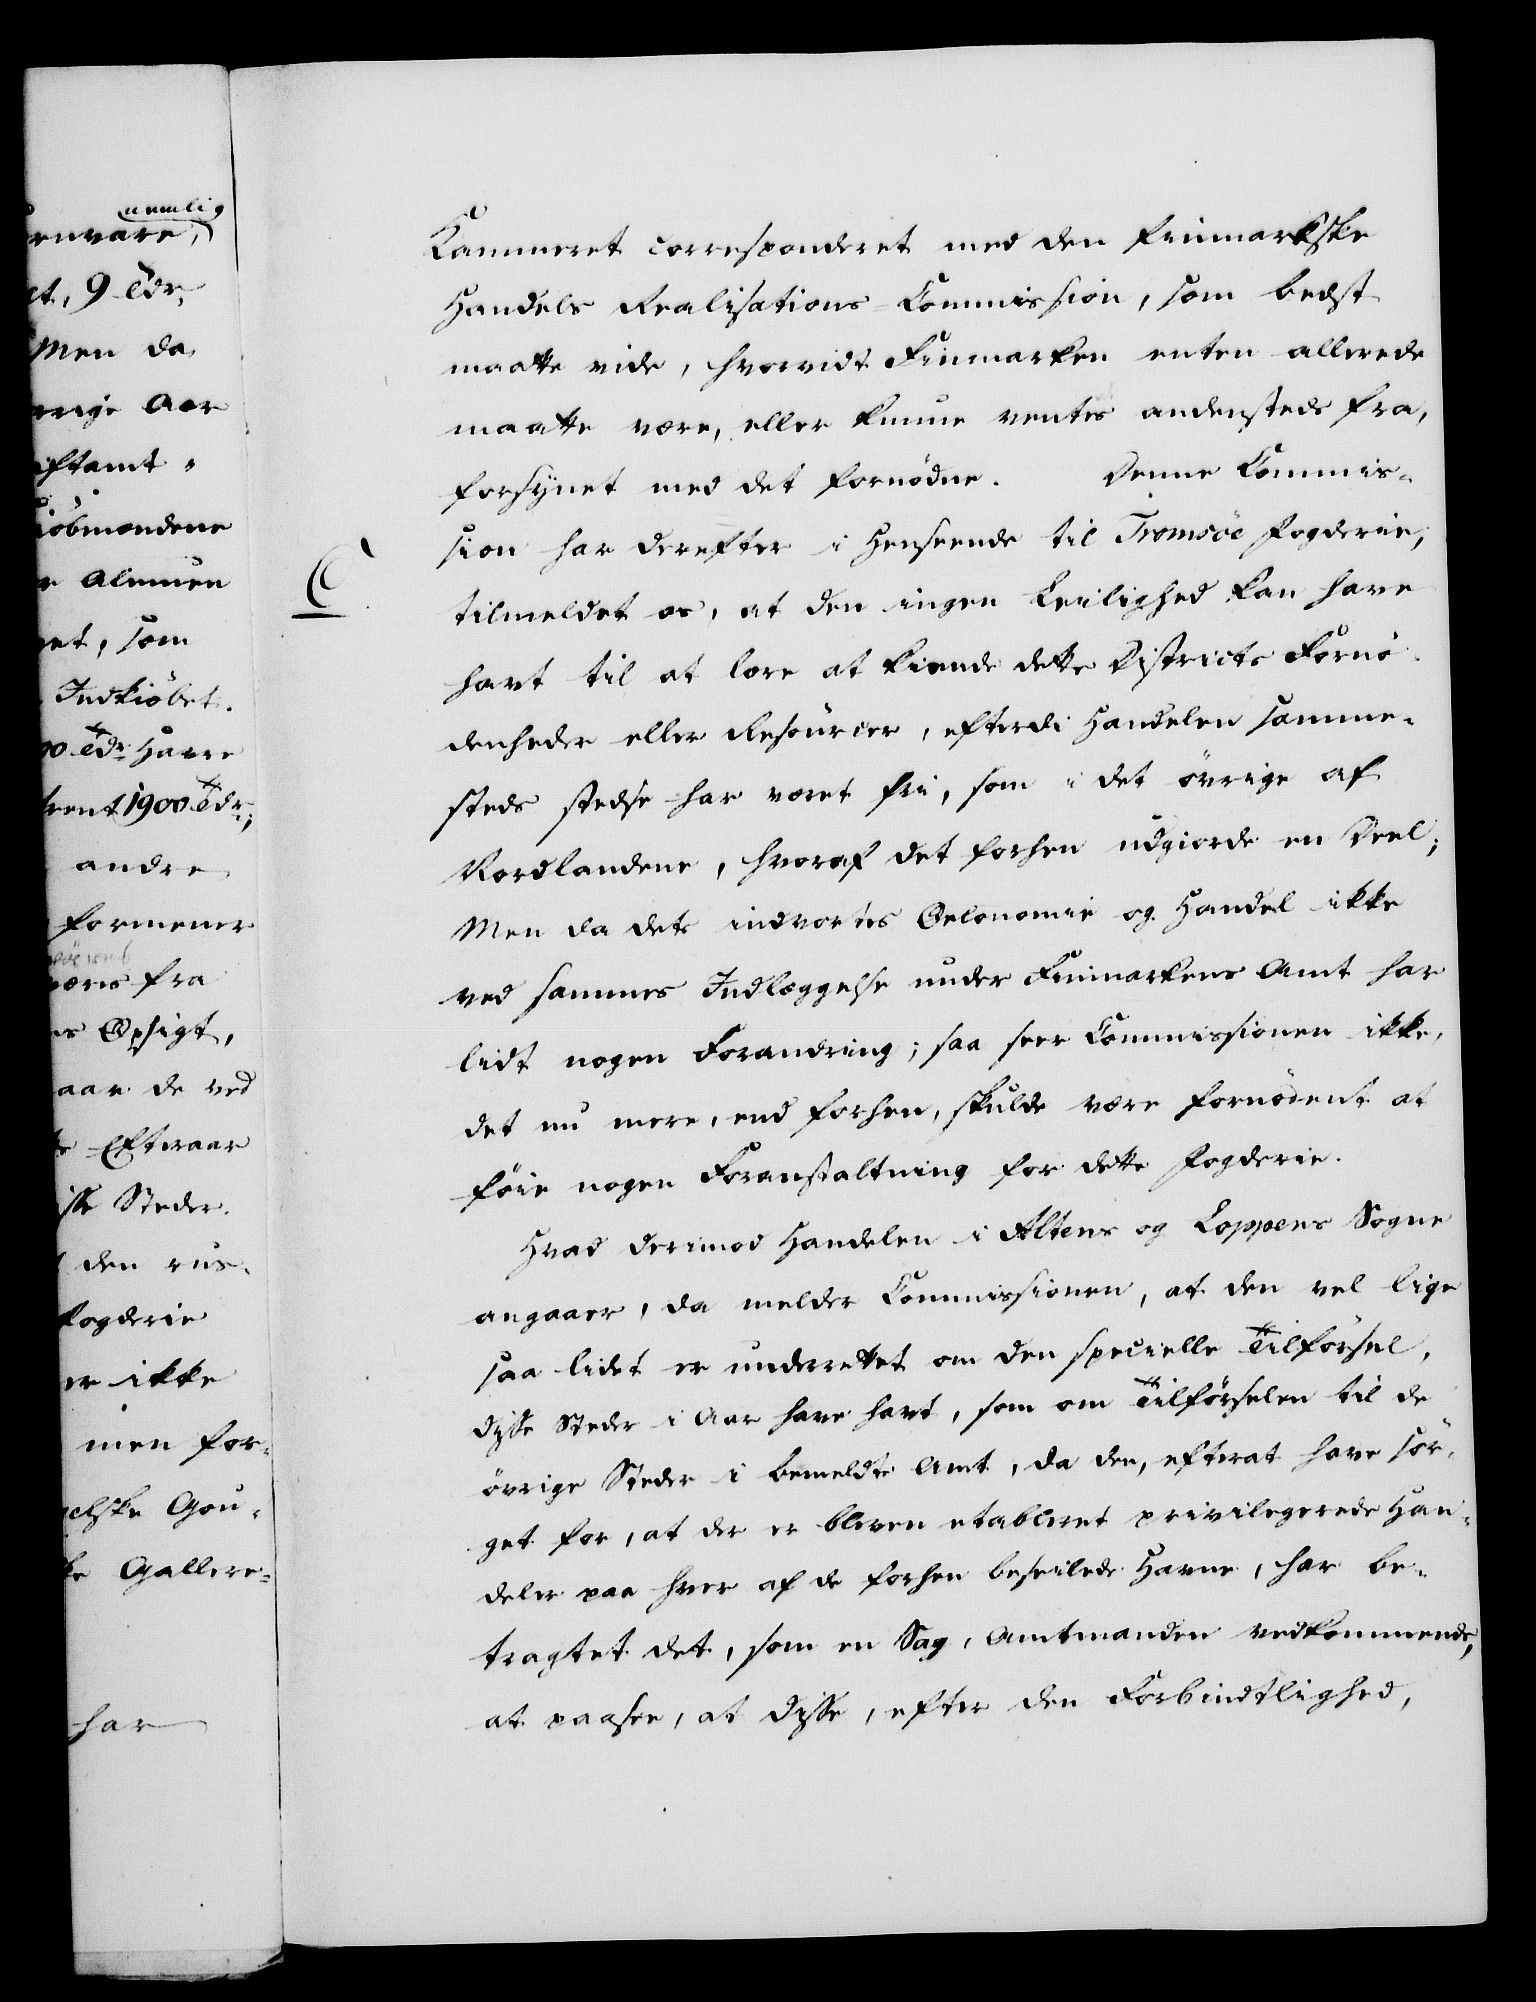 nemlig
envare,
et, 9 Tdr.
Men da
rrige Aar
iftamt
iöbmændene
r Alenuen
et, som
Indkiöbet.
00 Tdr Havre
rent 1900 Tdr;
andre
formener
væres fra
es Opsigt,
aar de ved
Efteraar
isse Steder.
den rus-
Fogderie
er ikke
men for-
elske Gou-
ke Gallere-
har
Kammeret corresponderet med den Finmarkske
Handels Realisations-Commission, som bedst
maatte vide, hvorvidt Finmarken enten allerede
maatte være, eller kunne ventes andensteds fra,
forsynet med det fornödne. Denne Commis-
sion har derefter i Henseende til Tromsöe Fogderie,
C.
tilmeldet os, at den ingen Leilighed kan have
havt til at lære at kiende dette Districts Fornö-
denheder eller Resourcer, efterdi Handelen samme-
steds stedse har været fri, som i det övrige af
Nordlandene, hvoraf det forhen udgiorde en Deel;
Men da dets indvortes Oeconomie og Handel ikke
ved sammes Indlæggelse under Finmarkens Amt har
lidt nogen Forandring; saa seer Commissionen ikke,
det nu mere, end forhen, skulde være fornödent at
föie nogen Foranstaltning for dette Fogderie.
Hvad derimod Handelen i Altens og Loppens Sogne
angaaer, da melder Commissionen, at den vel lige
saa lidet er underrettet om den specielle Tilförsel,
disse Steder i Aar have havt, som om Tilförselen til de
övrige Steder i bemeldte Amt, da den, efterat have sör-
get for, at der er bleven etableret privilegerede Han-
deler paa hver af de forhen beseilede Havne, har be-
tragtet det, som en Sag, Amtmanden vedkommende,
at paasee, at disse, efter den Forbindtlighed,